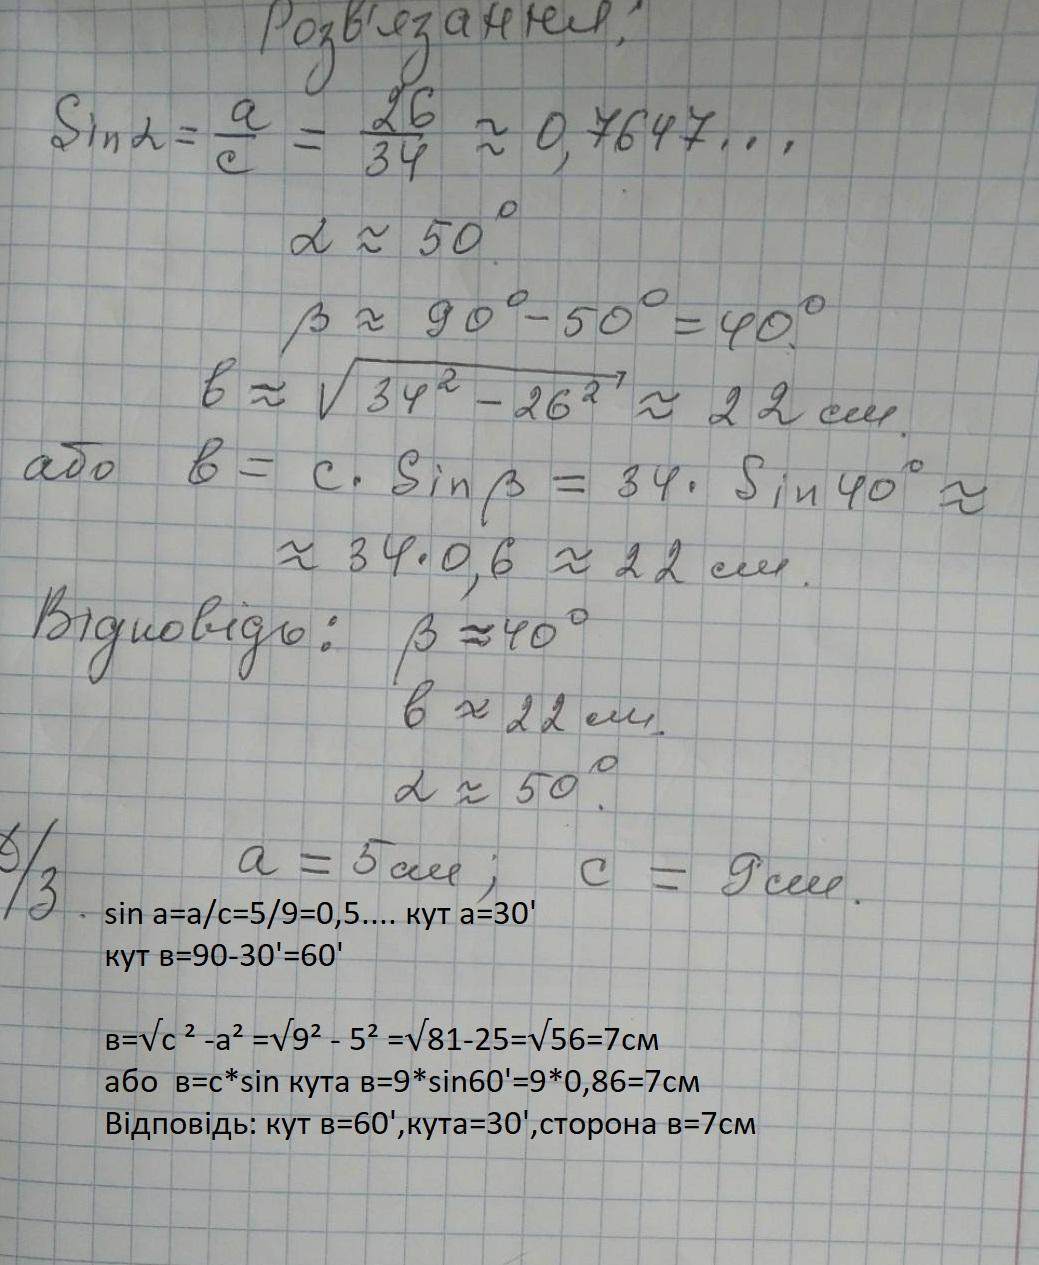 Розв'язання:
Sin α = a/c = 26/34 ≈ 0,7647...
α ≈ 50°.
β ≈ 90° - 50° = 40°.
в ≈ √34² - 26² ≈ 22 см.
або в = c. Sin β = 34. Sin 40° ≈
≈ 34.0,6 ≈ 22 см.
Відповідь: β ≈ 40°
в ≈ 22 см.
α ≈ 50°.
Д/З. a = 5 см; c = 9 см.
sin a=a/c=5/9=0,5.... кут а=30'
кут в=90-30'=60'
в=√c ² -a² =√9² - 5² =√81-25=√56=7см
або в=c*sin кута в=9*sin60'=9*0,86=7см
Відповідь: кут в=60',кута=30',сторона в=7см